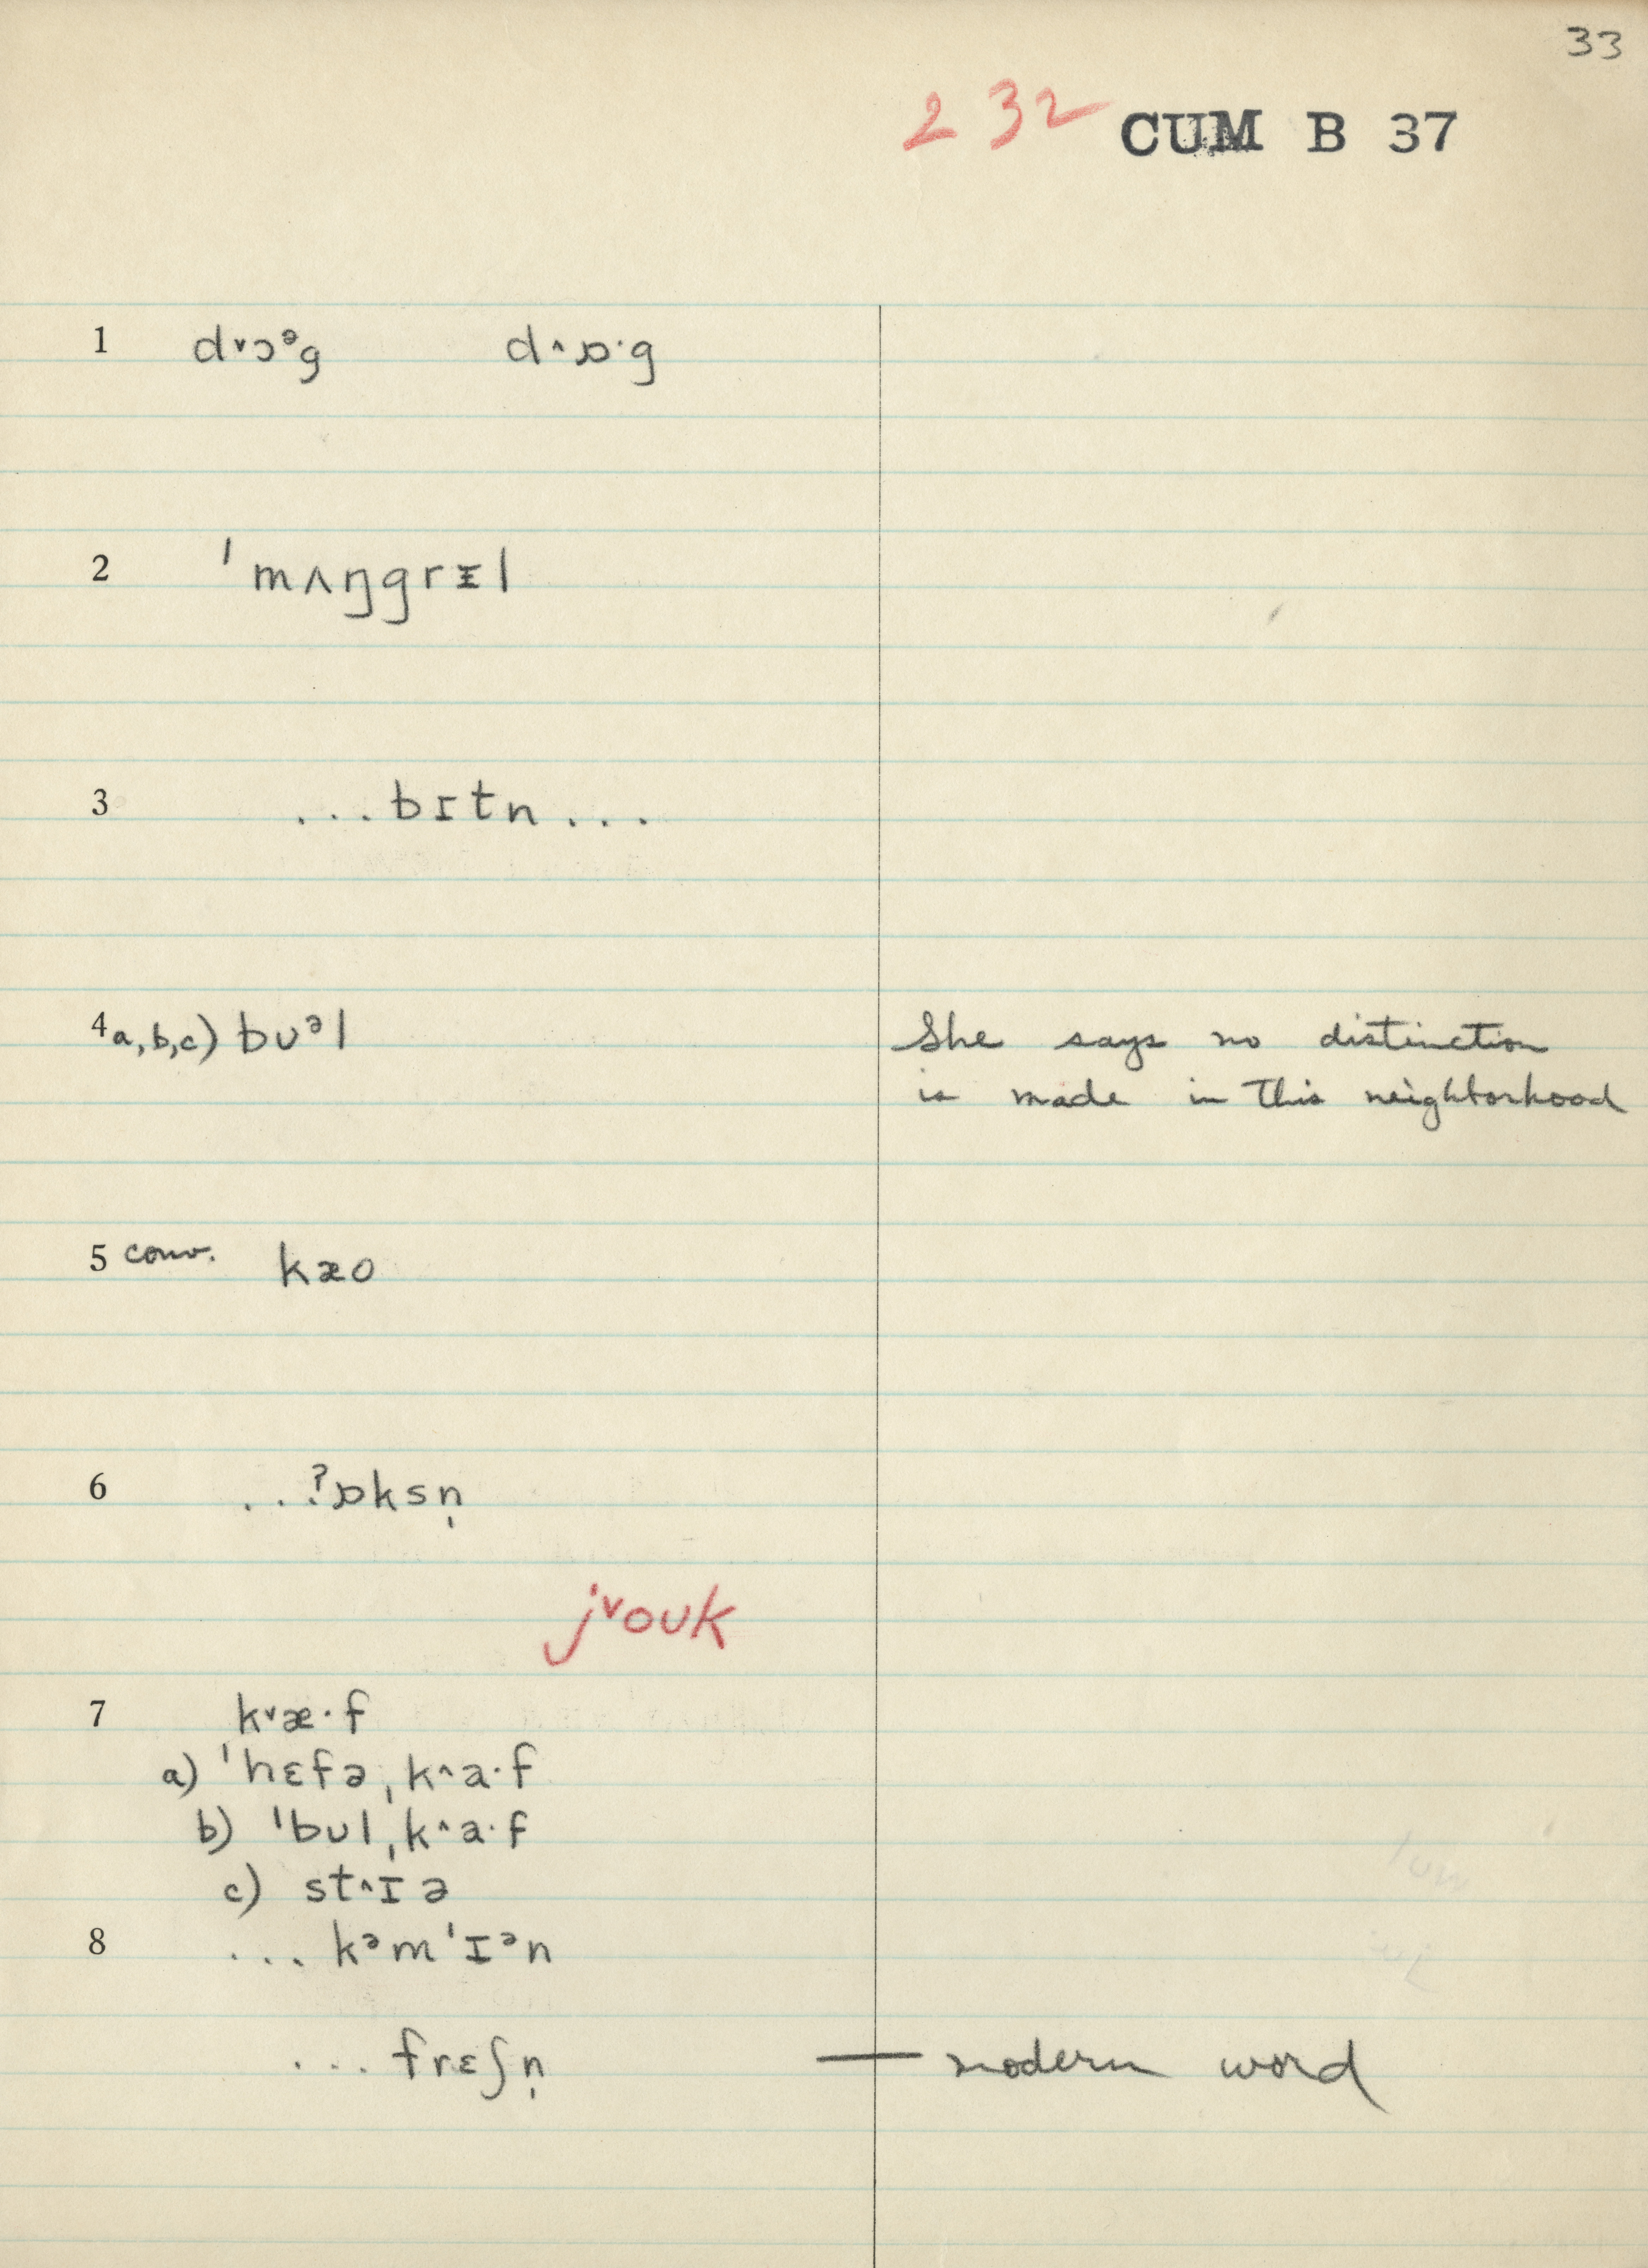 33
232 CUM B 37
1 d˅ɔᵊg d˄ɒ·g
2 ˈmʌŋgrɪ̵l
3 ...bɪtn...
4 a,b,c) bʊᵊl She says no distinction
is made in this neighborhood
5 conv. kæo
6 ..ʔɒksn̩
j˅oʊk
7 k˅æ·f
a) ˈhɛfəˌk˄a·f
b) ˈbʊlˌk˄a·f
c) st˄ɪə
8 ...kᵊmˈɪᵊn
...frɛʃn̩ — modern word